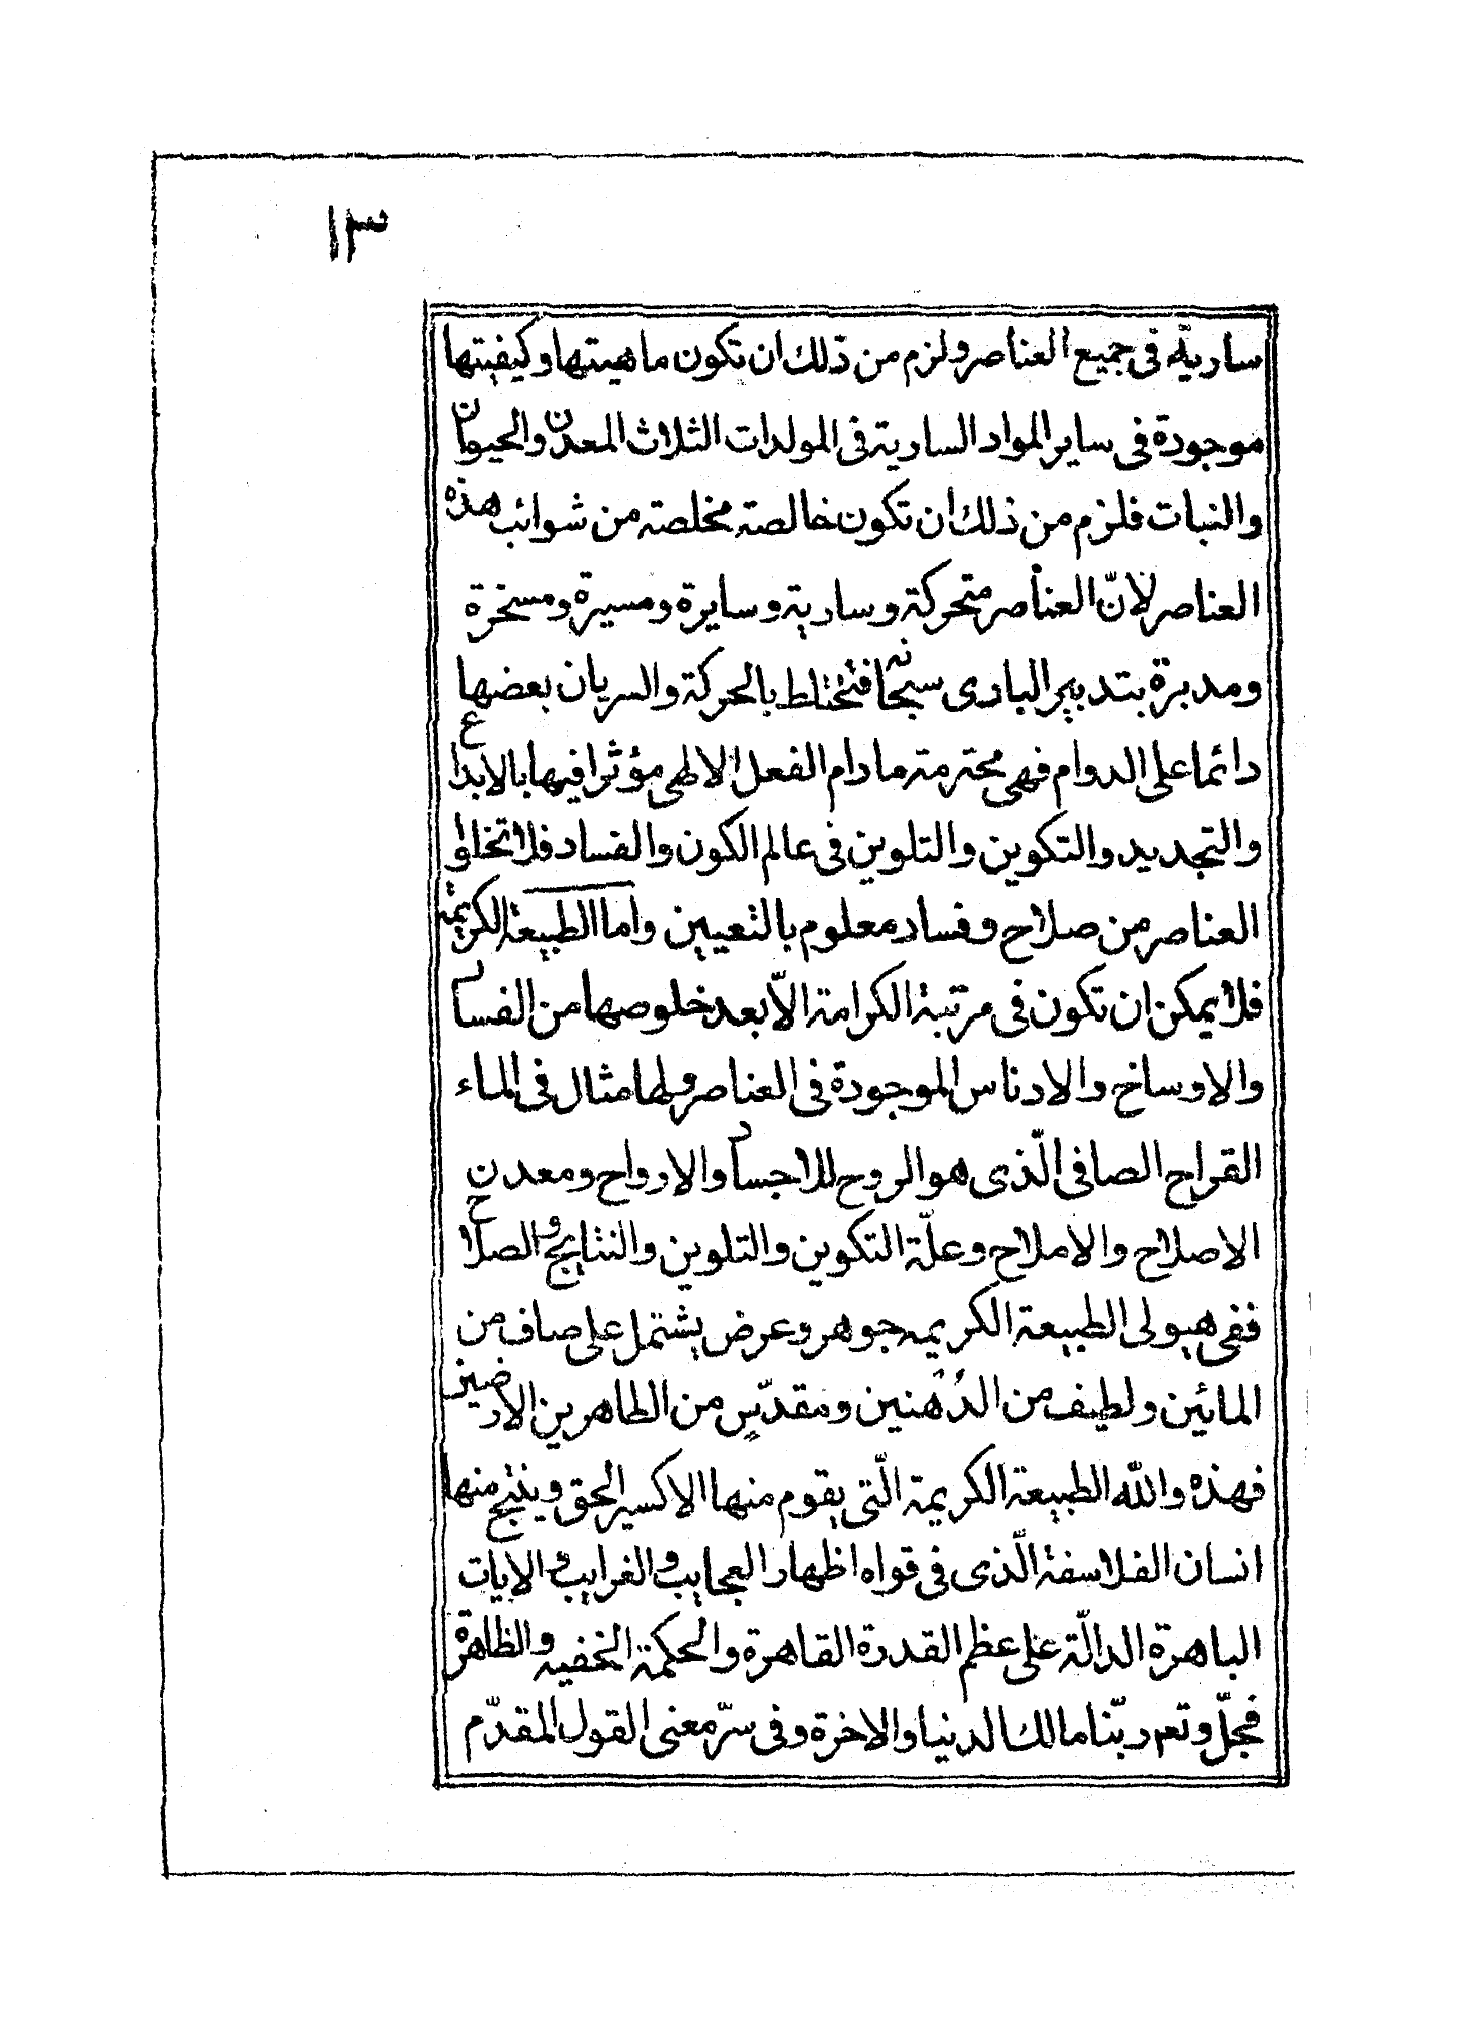 ١٣
سارية فى جميع العناصر ولزم من ذلك ان تكون ماهيتها وكيفيتها
موجودة فى ساير المواد السارية فى المولدات الثلاث المعدن والحيوان
والنبات فلزم من ذلك ان تكون خالصة مخلصة من شوائب هذه
العناصر لانّ العناصر متحركة وسارية وسايرة ومسيرة ومسخرة
ومدبرة بتدبير البارى سبحانه فتختلط بالحركة والسريان بعضها
دائما على الدوام فهى محترمة مادام الفعل الالهى مؤثرا فيها بالابداع
والتجديد والتكوين والتلوين فى عالم الكون والفساد فلا تخلوا
العناصر من صلاح وفساد معلوم بالتعيين واما الطبيعة الكريمة
فلا يمكن ان تكون فى مرتبة الكرامة الّا بعد خلوصها من الفساد
والاوساخ والادناس الموجودة فى العناصر ولها مثال فى الماء
القراح الصافى الّذى هو الروح للاجساد والارواح ومعدن
الاصلاح والاملاح وعلّة التكوين والتلوين والنتايج والصلاح
ففى هيولى الطبيعة الكريمه جوهر وعرض يشتمل على صاف من
المائين ولطيف من الدُهنين ومقدّس من الطاهرين الارضين
فهذه والله الطبيعة الكريمة الّتى يقوم منها الاكسير الحق وينتج منها
انسان الفلاسفة الّذى فى قواه اظهار العجايب والغرايب والايات
الباهرة الدالّة على عظم القدرة القاهرة والحكمة الخفيه والظاهرة
فجلّ وتعم ربّنا مالك الدنيا والاخرة وفى سرّ معنى القول المقدّم